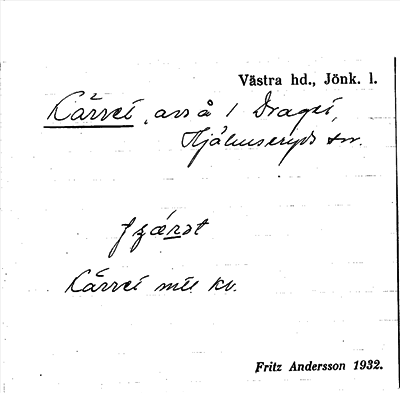 Västra hd., Jönk. l.
Kärret, avs å 1 Draget,
Hjälmseryds sn.
Kärret mtl kv.
Fritz Andersson 1932.